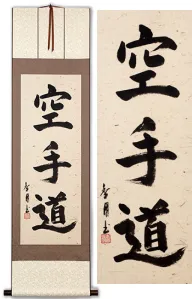 空手道
空手道